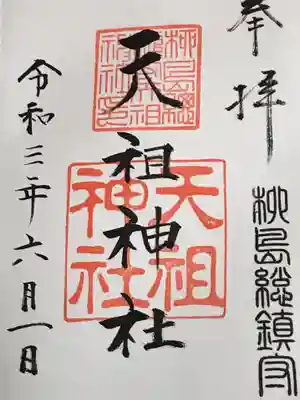 奉拝
柳島総鎮守
天祖神社
天祖
神社
令和三年六月一日